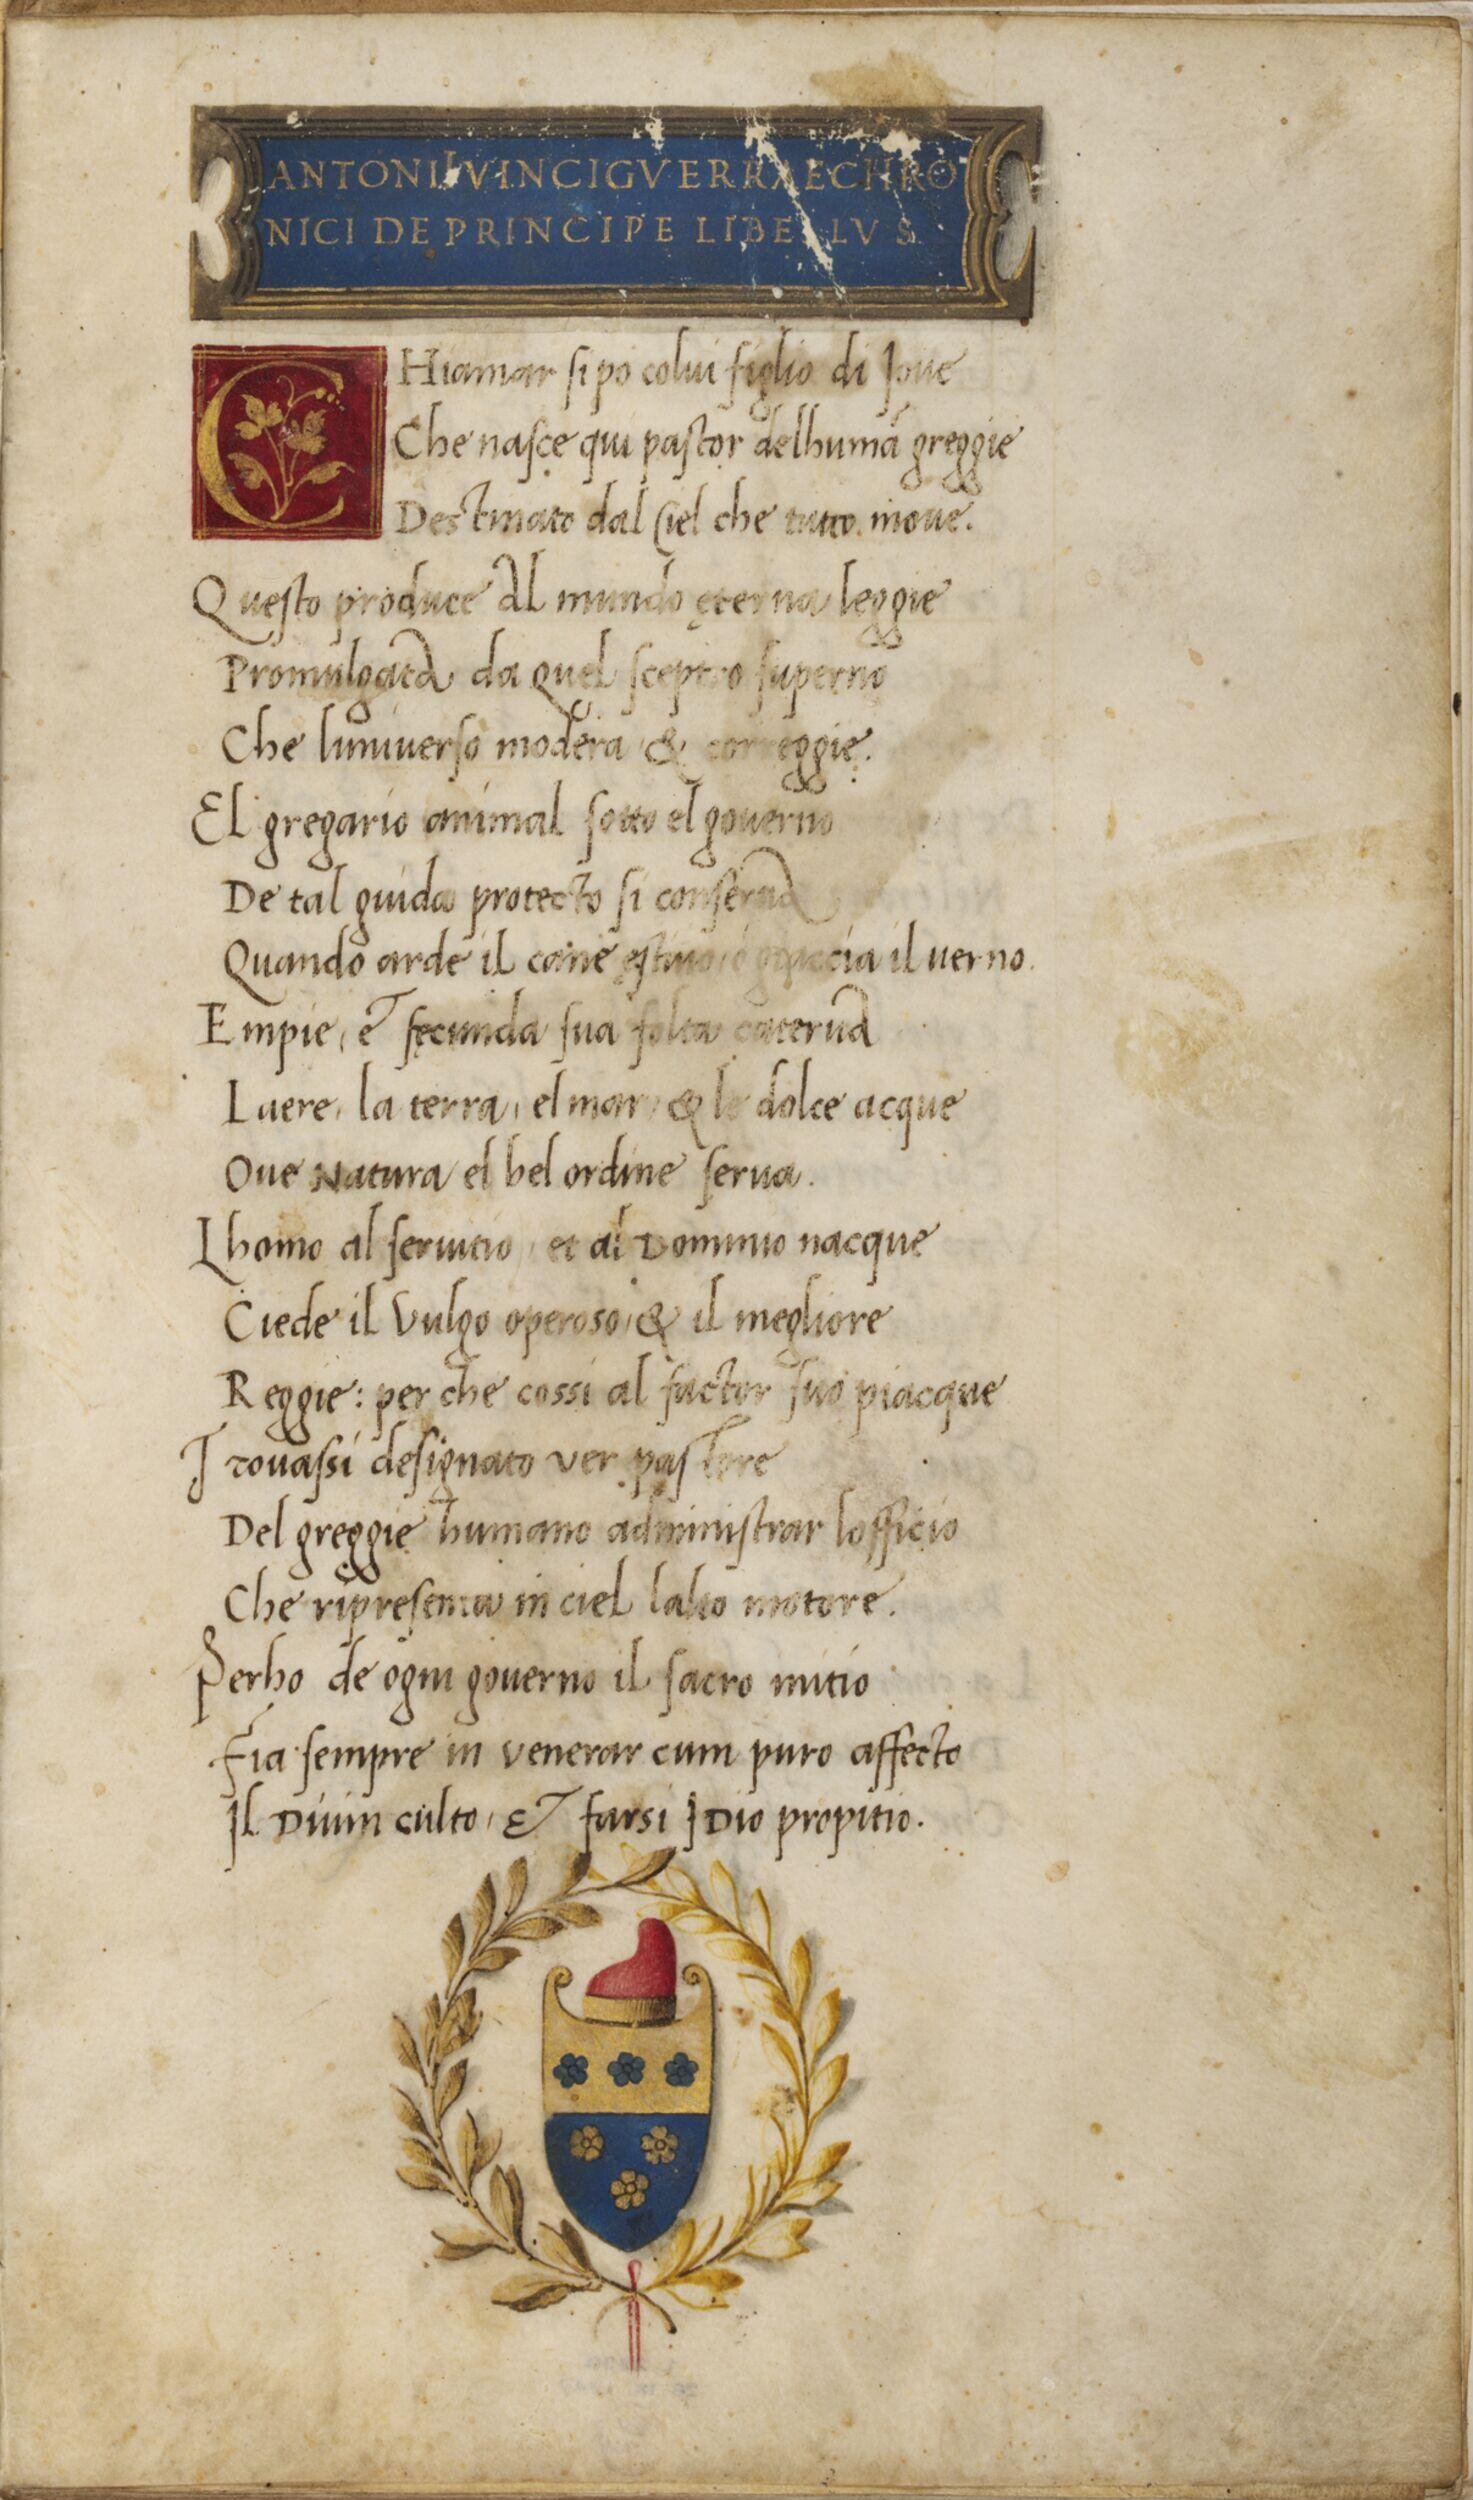 ANTONII VINCIGVERRAE CHRO
NICI DE PRINCIPE LIBELLVS
CHiamar si po colui figlio di Ioue
Che nasce qui pastor delhumā greggie
Destinato dal Ciel che tutto moue.
Questo produce Al mundo ęterna leggie
Promulgata da quel sceptro superno
Che luniuerso modera & correggie.
El gregario animal sotto el gouerno
De tal guida protecto si conserua
Quando arde il cane ęstiuo, o giaccia il verno.
Empie, et fęcunda sua folta caterua
Laere, la terra, el mar, & le dolce acque
Oue Natura el bel ordine serua.
Lhomo al seruitio, et al Dominio nacque
Ciede il Vulgo operoso, & il megliore
Reggie: per che cossi al factor suo piacque
Trouassi designato ver pastore
Del greggie humano administrar lofficio
Che ripresenta in ciel lalto motore.
Perho de ogni gouerno il sacro initio
Fia sempre in venerar cum puro affecto
Il Diuin culto, Et farsi IDio propitio.